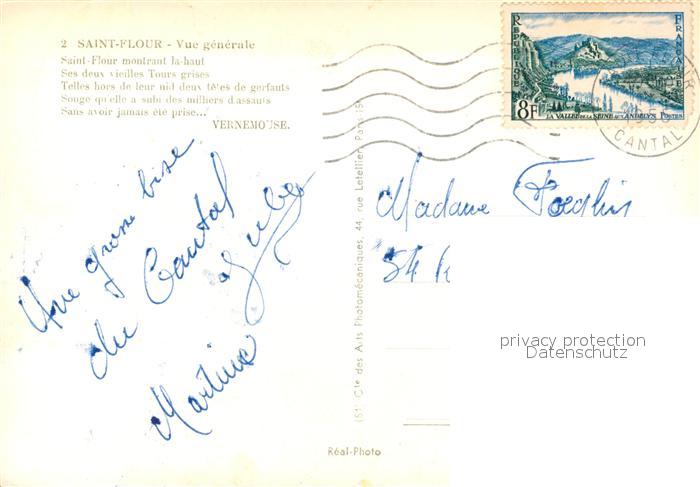 2 SAINT-FLOUR - Vue générale
Saint-Flour montrant là-haut
Ses deux vieilles Tours grises
Telles hors de leur nid deux têtes de gerfauts
Songe qu'elle a subi des milliers d'assauts
Sans avoir jamais été prise...
VERNEMOUSE.
RÉPUBLIQUE
FRANÇAISE
8F
LA VALLÉE DE LA SEINE AUX ANDELYS
POSTES
CANTAL
Une grosse bise
du Cantal
Martine
Madame
54
(S) Cité des Arts Photomécaniques, 44, rue Letellier, Paris-15
Réal-Photo
privacy protection
Datenschutz